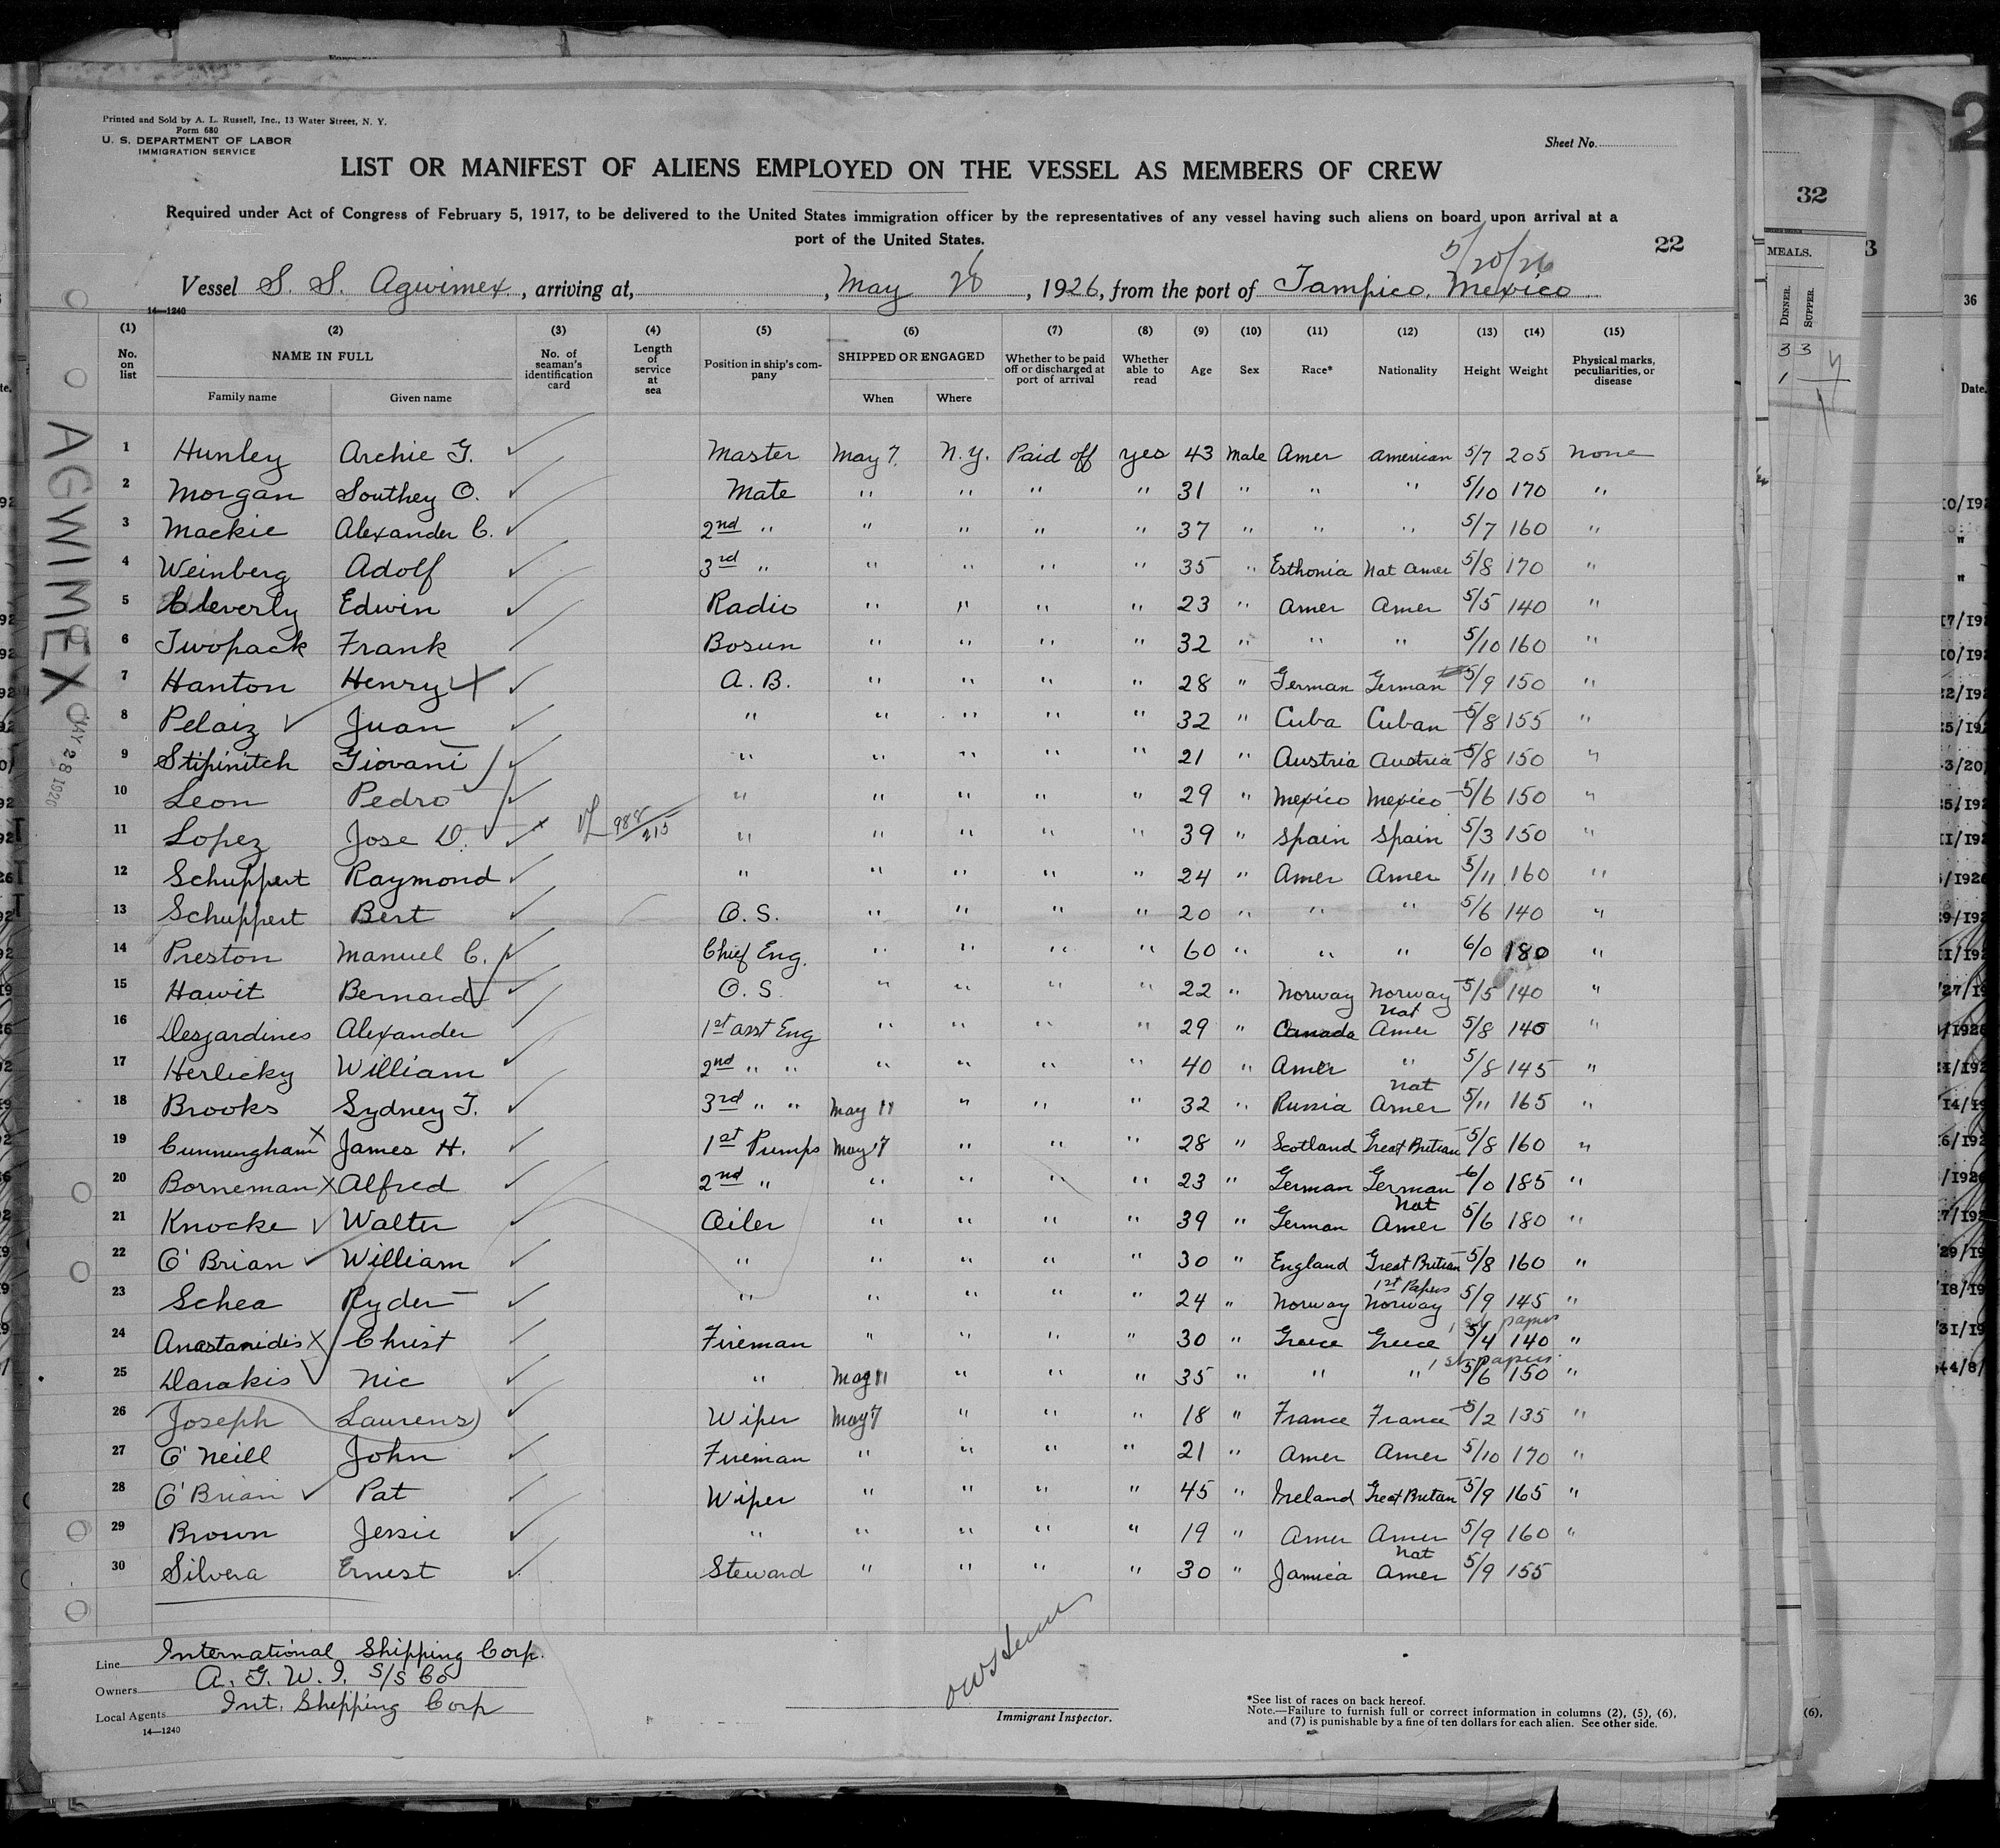 Printed and Sold by A. L. Russell, Inc., 13 Water Street, N. Y.
Form 680
U. S. DEPARTMENT OF LABOR
IMMIGRATION SERVICE
Sheet No.
LIST OR MANIFEST OF ALIENS EMPLOYED ON THE VESSEL AS MEMBERS OF CREW
Required under Act of Congress of February 5, 1917, to be delivered to the United States immigration officer by the representatives of any vessel having such aliens on board upon arrival at a
port of the United States.
22
5/20/26
Vessel S. S. Agwimex, arriving at, , May 26, 1926, from the port of Tampico, Mexico
14—1240
(1) (2) (3) (4) (5) (6) (7) (8) (9) (10) (11) (12) (13) (14) (15)
No. on list NAME IN FULL Family name Given name No. of seaman's identification card Length of service at sea Position in ship's company SHIPPED OR ENGAGED When Where Whether to be paid off or discharged at port of arrival Whether able to read Age Sex Race* Nationality Height Weight Physical marks, peculiarities, or disease
1 Hunley Archie G. Master May 7 N.Y. Paid off yes 43 Male Amer American 5/7 205 None
2 Morgan Southey O. Mate " " " " 31 " " " 5/10 170 "
3 Mackie Alexander C. 2nd " " " " " 37 " " " 5/7 160 "
4 Weinberg Adolf 3rd " " " " " 35 " Esthonia Nat Amer 5/8 170 "
5 Cleverly Edwin Radio " " " " 23 " Amer Amer 5/5 140 "
6 Twopack Frank Bosun " " " " 32 " " " 5/10 160 "
7 Hanton Henry A. B. " " " " 28 " German German 5/9 150 "
8 Pelaiz Juan " " " " " 32 " Cuba Cuban 5/8 155 "
9 Stipinitch Giovani " " " " " 21 " Austria Austria 5/8 150 "
10 Leon Pedro " " " " " 29 " Mexico Mexico 5/6 150 "
11 Lopez Jose D. 988/215 " " " " " 39 " Spain Spain 5/3 150 "
12 Schuppert Raymond " " " " " 24 " Amer Amer 5/11 160 "
13 Schuppert Bert O. S. " " " " 20 " " " 5/6 140 "
14 Preston Manuel C. Chief Eng. " " " " 60 " " " 6/0 180 "
15 Hawit Bernard O. S. " " " " 22 " Norway Norway 5/5 140 "
16 Desjardines Alexander 1st asst Eng " " " " 29 " Canada Nat Amer 5/8 140 "
17 Herlicky William 2nd " " " " " " 40 " Amer " 5/8 145 "
18 Brooks Sydney T. 3rd " " May 11 " " " 32 " Russia Nat Amer 5/11 165 "
19 Cunningham James H. 1st Pumps May 7 " " " 28 " Scotland Great Britian 5/8 160 "
20 Borneman Alfred 2nd " " " " " 23 " German German 6/0 185 "
21 Knocke Walter Oiler " " " " 39 " German Nat Amer 5/6 180 "
22 O'Brian William " " " " " 30 " England Great Britian 5/8 160 "
23 Schea Ryder " " " " " 24 " Norway 1st Papers Norway 5/9 145 "
24 Anastanidis Christ Fireman " " " " 30 " Greece Greece 1st papers 5/4 140 "
25 Darakis Nic " May 11 " " " 35 " " " 1st papers 5/6 150 "
26 Joseph Laurens Wiper May 7 " " " 18 " France France 5/2 135 "
27 O'Neill John Fireman " " " " 21 " Amer Amer 5/10 170 "
28 O'Brian Pat Wiper " " " " 45 " Ireland Great Britian 5/9 165 "
29 Brown Jessie " " " " " 19 " Amer Amer 5/9 160 "
30 Silvera Ernest Steward " " " " 30 " Jamica Nat Amer 5/9 155
AGWIMEX
MAY 28 1926
Line International Shipping Corp.
Owners A. G. W. I. S/S Co
Local Agents Int. Shipping Corp
14—1240
Immigrant Inspector.
*See list of races on back hereof.
Note.—Failure to furnish full or correct information in columns (2), (5), (6),
and (7) is punishable by a fine of ten dollars for each alien. See other side.
32
MEALS.
DINNER.
SUPPER.
3 3
36
Date.
(6),